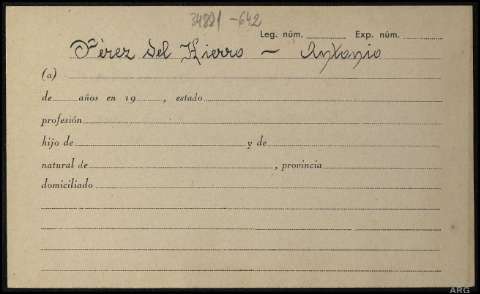 34881-642
Leg. núm. Exp. núm.
Pérez del Hierro - Antonio
(a)
de años en 19 , estado
profesión
hijo de y de
natural de , provincia
domiciliado
ARG